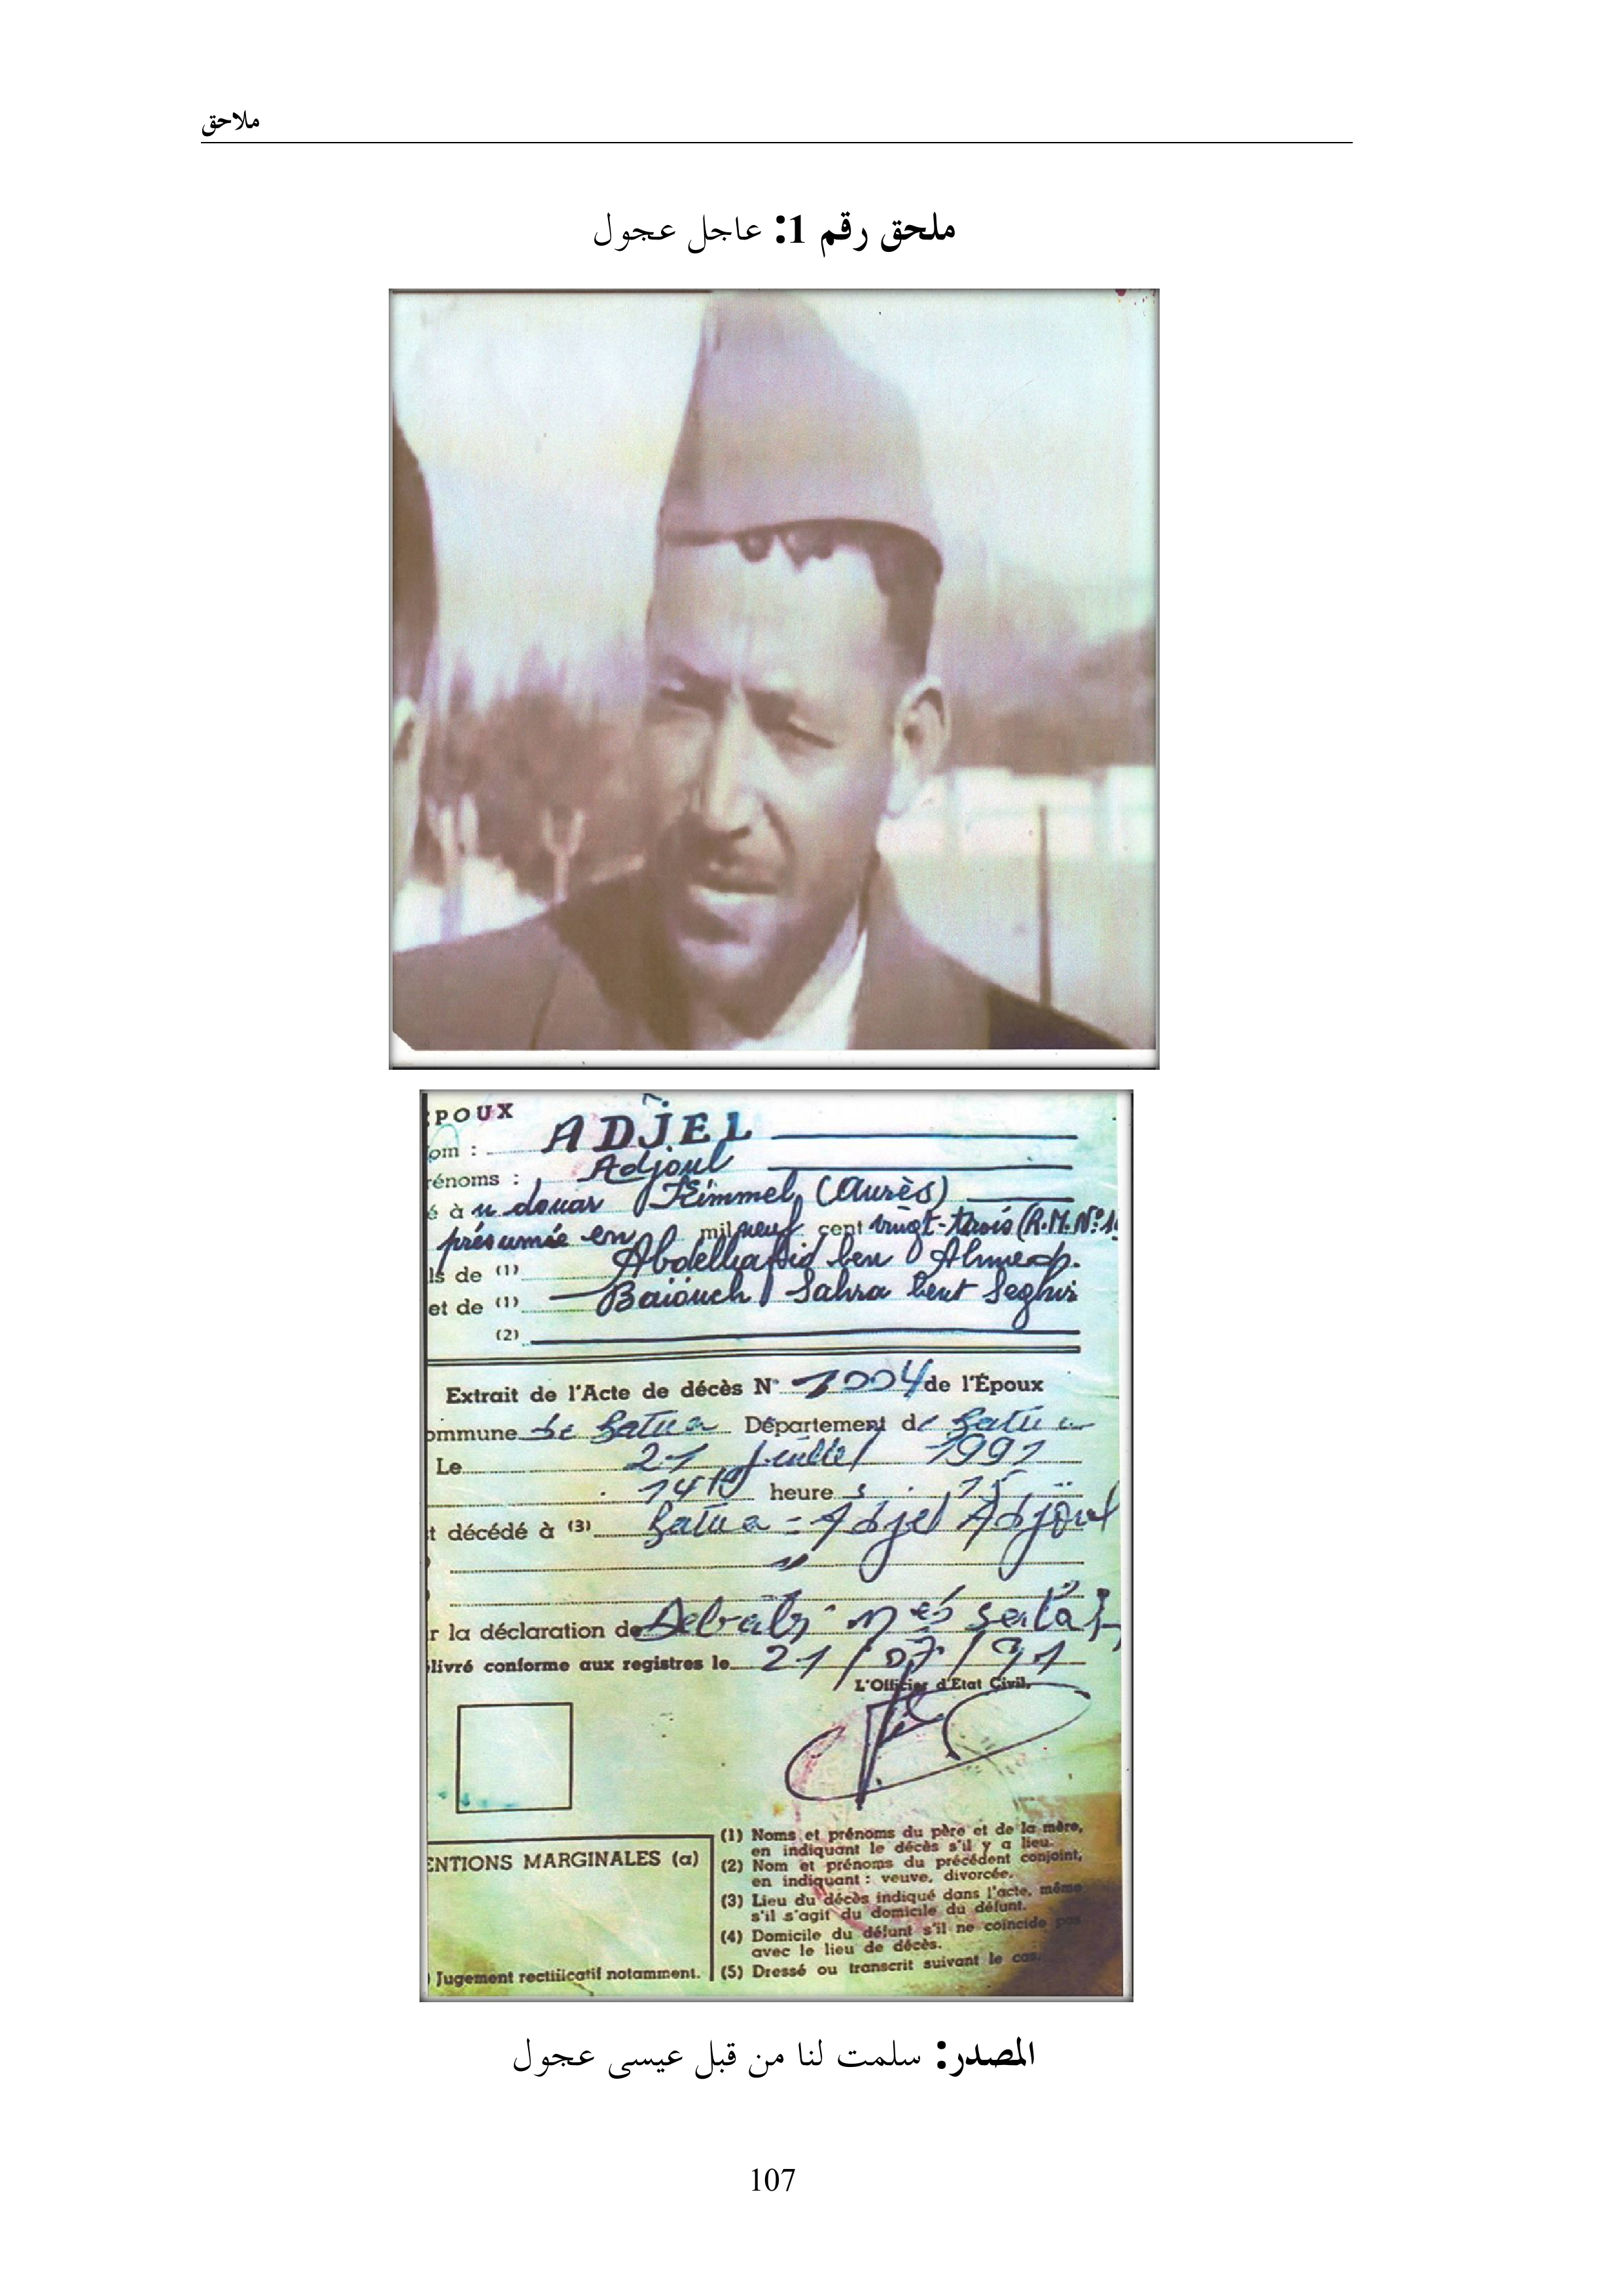 ملاحق
ملحق رقم 1: عاجل عجول
POUX
om : ADJEL
rénoms : Adjoul
é à u douar Kimmel (Aurès)
présumée en mil neuf cent vingt-trois (R.M.N°
ls de (1) Abdelhafid ben Ahmed.
et de (1) Baïouch Sahra bent Seghir
(2)
Extrait de l'Acte de décès N° 1004 de l'Époux
ommune de Batna Département de Batna
Le 21 juillet 1991
14 H heure s 15
t décédé à (3) Batna = Adjel Adjoul
r la déclaration de
livré conforme aux registres le 21/07/91
L'Officier d'Etat Civil,
(1) Noms et prénoms du père et de la mère,
en indiquant le décès s'il y a lieu.
(2) Nom et prénoms du précédent conjoint,
en indiquant : veuve, divorcée.
(3) Lieu du décès indiqué dans l'acte, même
s'il s'agit du domicile du défunt.
(4) Domicile du défunt s'il ne coïncide pas
avec le lieu de décès.
(5) Dressé ou transcrit suivant le cas.
ENTIONS MARGINALES (a)
) Jugement rectificatif notamment.
المصدر: سلمت لنا من قبل عيسى عجول
107